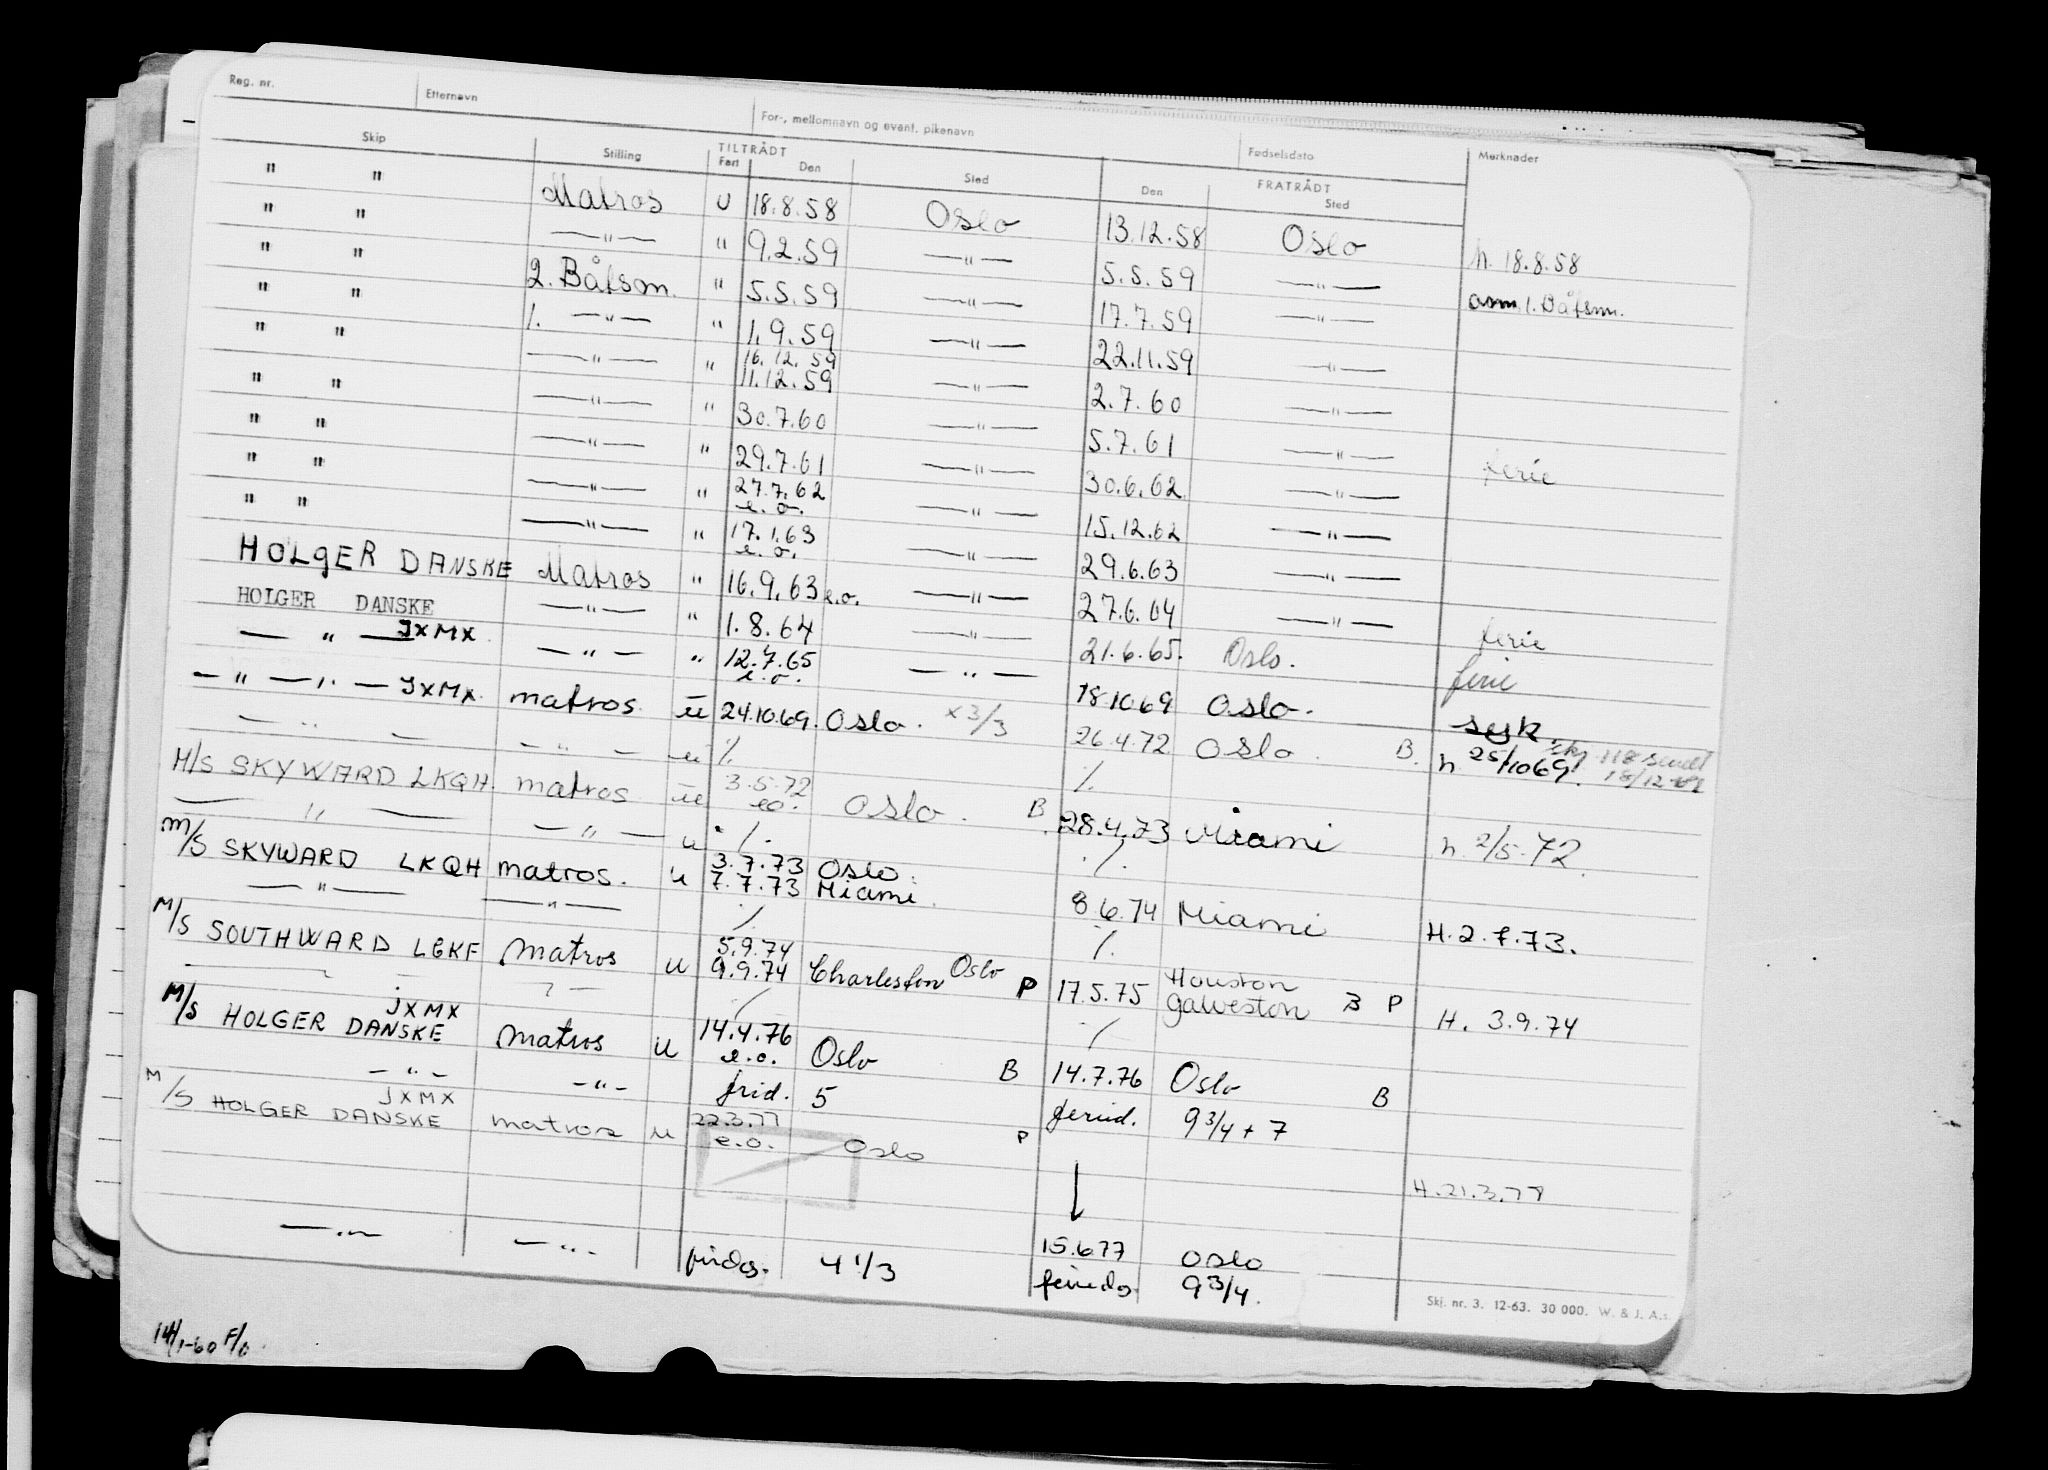 Reg. nr. Etternavn For-, mellomnavn og event. pikenavn Fødselsdato Merknader
Skip Stilling TILTRÅDT FRATRÅDT
Fart Den Sted Den Sted
" " Matros U 18.8.58 Oslo 13.12.58 Oslo h. 18.8.58
" " —"— " 9.2.59 —"— 5.5.59 —"— 1. Båtsm.
" " 2. Båtsm. " 5.5.59 —"— 17.7.59 —"—
" " 1. —"— " 1.9.59 —"— 22.11.59 —"—
16.12.59
" " —"— " 11.12.59 —"— 2.7.60 —"—
" " —"— " 30.7.60 —"— 5.7.61 —"— ferie
" " —"— " 29.7.61 —"— 30.6.62 —"—
" " —"— " 27.7.62 —"— 15.12.62 —"—
e.o.
" " —"— " 17.1.63 —"— 29.6.63 —"—
e.o.
HOLGER DANSKE Matros " 16.9.63 e.o. —"— 27.6.64 —"— ferie
HOLGER DANSKE —"— " 1.8.64 —"— 21.6.65. Oslo. ferie
— " — JXMX —"— " 12.7.65 —"— 18.10.69 Oslo. syk.
e.o.
—"—"— JXMX. matros u 24.10.69. Oslo. x 3/3 26.4.72 Oslo. B. h 25/10 69.
— " — — " — u ./. ./.
M/S SKYWARD LKQH. matros u 3.5.72 Oslo. B 28.4.73 Miami h. 2/5.72.
eo.
— " — — " — u ./. ./.
M/S SKYWARD LKQH matros. u 3.7.73 Oslo.
7.7.73 Miami. 8.6.74 Miami H. 2.7.73.
— " — — " — ./. ./.
M/S SOUTHWARD LGKF Matros u 5.9.74 Oslo
9.9.74 Charleston P 17.5.75 Houston
Galveston B P H. 3.9.74
./. ./.
JXMX
M/S HOLGER DANSKE Matros u 14.4.76 Oslo B 14.7.76 Oslo B
e.o.
— " — — " — frid. 5 feried. 9 3/4 + 7
JXMX
M/S HOLGER DANSKE matros u 22.3.77 Oslo P
e.o. H. 21.3.77
15.6.77 Oslo
— " — — " — fridag. 4 1/3 feriedg. 9 3/4.
Skj. nr. 3. 12-63. 30 000. W. & J. A.s.
14/1-60 F/O